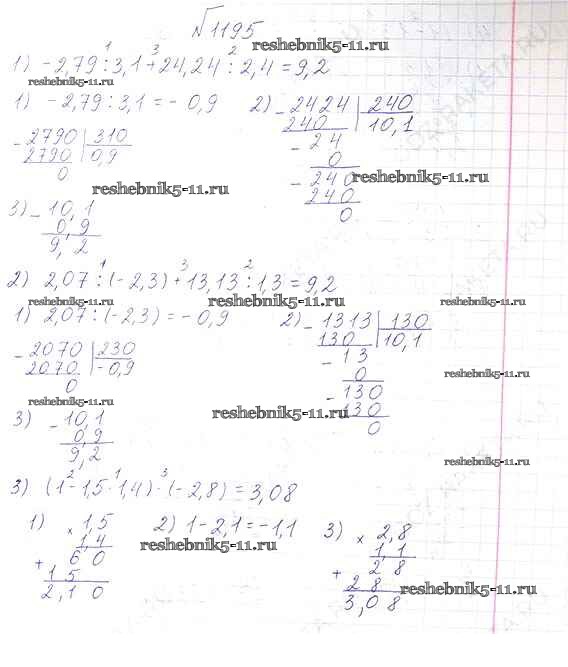 √1195
reshebnik5-11.ru
1) -2,79 : 3,1 + 24,24 : 2,4 = 9,2
1 3 2
reshebnik5-11.ru
1) -2,79 : 3,1 = -0,9 2) - 2424 | 240
240 10,1
- 2790 | 310 - 24
2790 0,9 0
0 - 240
reshebnik5-11.ru reshebnik5-11.ru
240
0
3) - 10,1
0,9
9,2
2) 2,07 : (-2,3) + 13,13 : 1,3 = 9,2
1 3 2
reshebnik5-11.ru reshebnik5-11.ru reshebnik5-11.ru
1) 2,07 : (-2,3) = -0,9 2) - 1313 | 130
130 10,1
- 2070 | 230 - 13
2070 -0,9 0
0 - 130
reshebnik5-11.ru
130
0
reshebnik5-11.ru
3) - 10,1
0,9
9,2
reshebnik5-11.ru
reshebnik5-11.ru
3) (1 - 1,5 · 1,4) · (-2,8) = 3,08
2 1 3
1) × 1,5 2) 1 - 2,1 = -1,1 3) × 2,8
1,4 1,1
+ 60 + 28
15 28
2,10 3,08
reshebnik5-11.ru
reshebnik5-11.ru